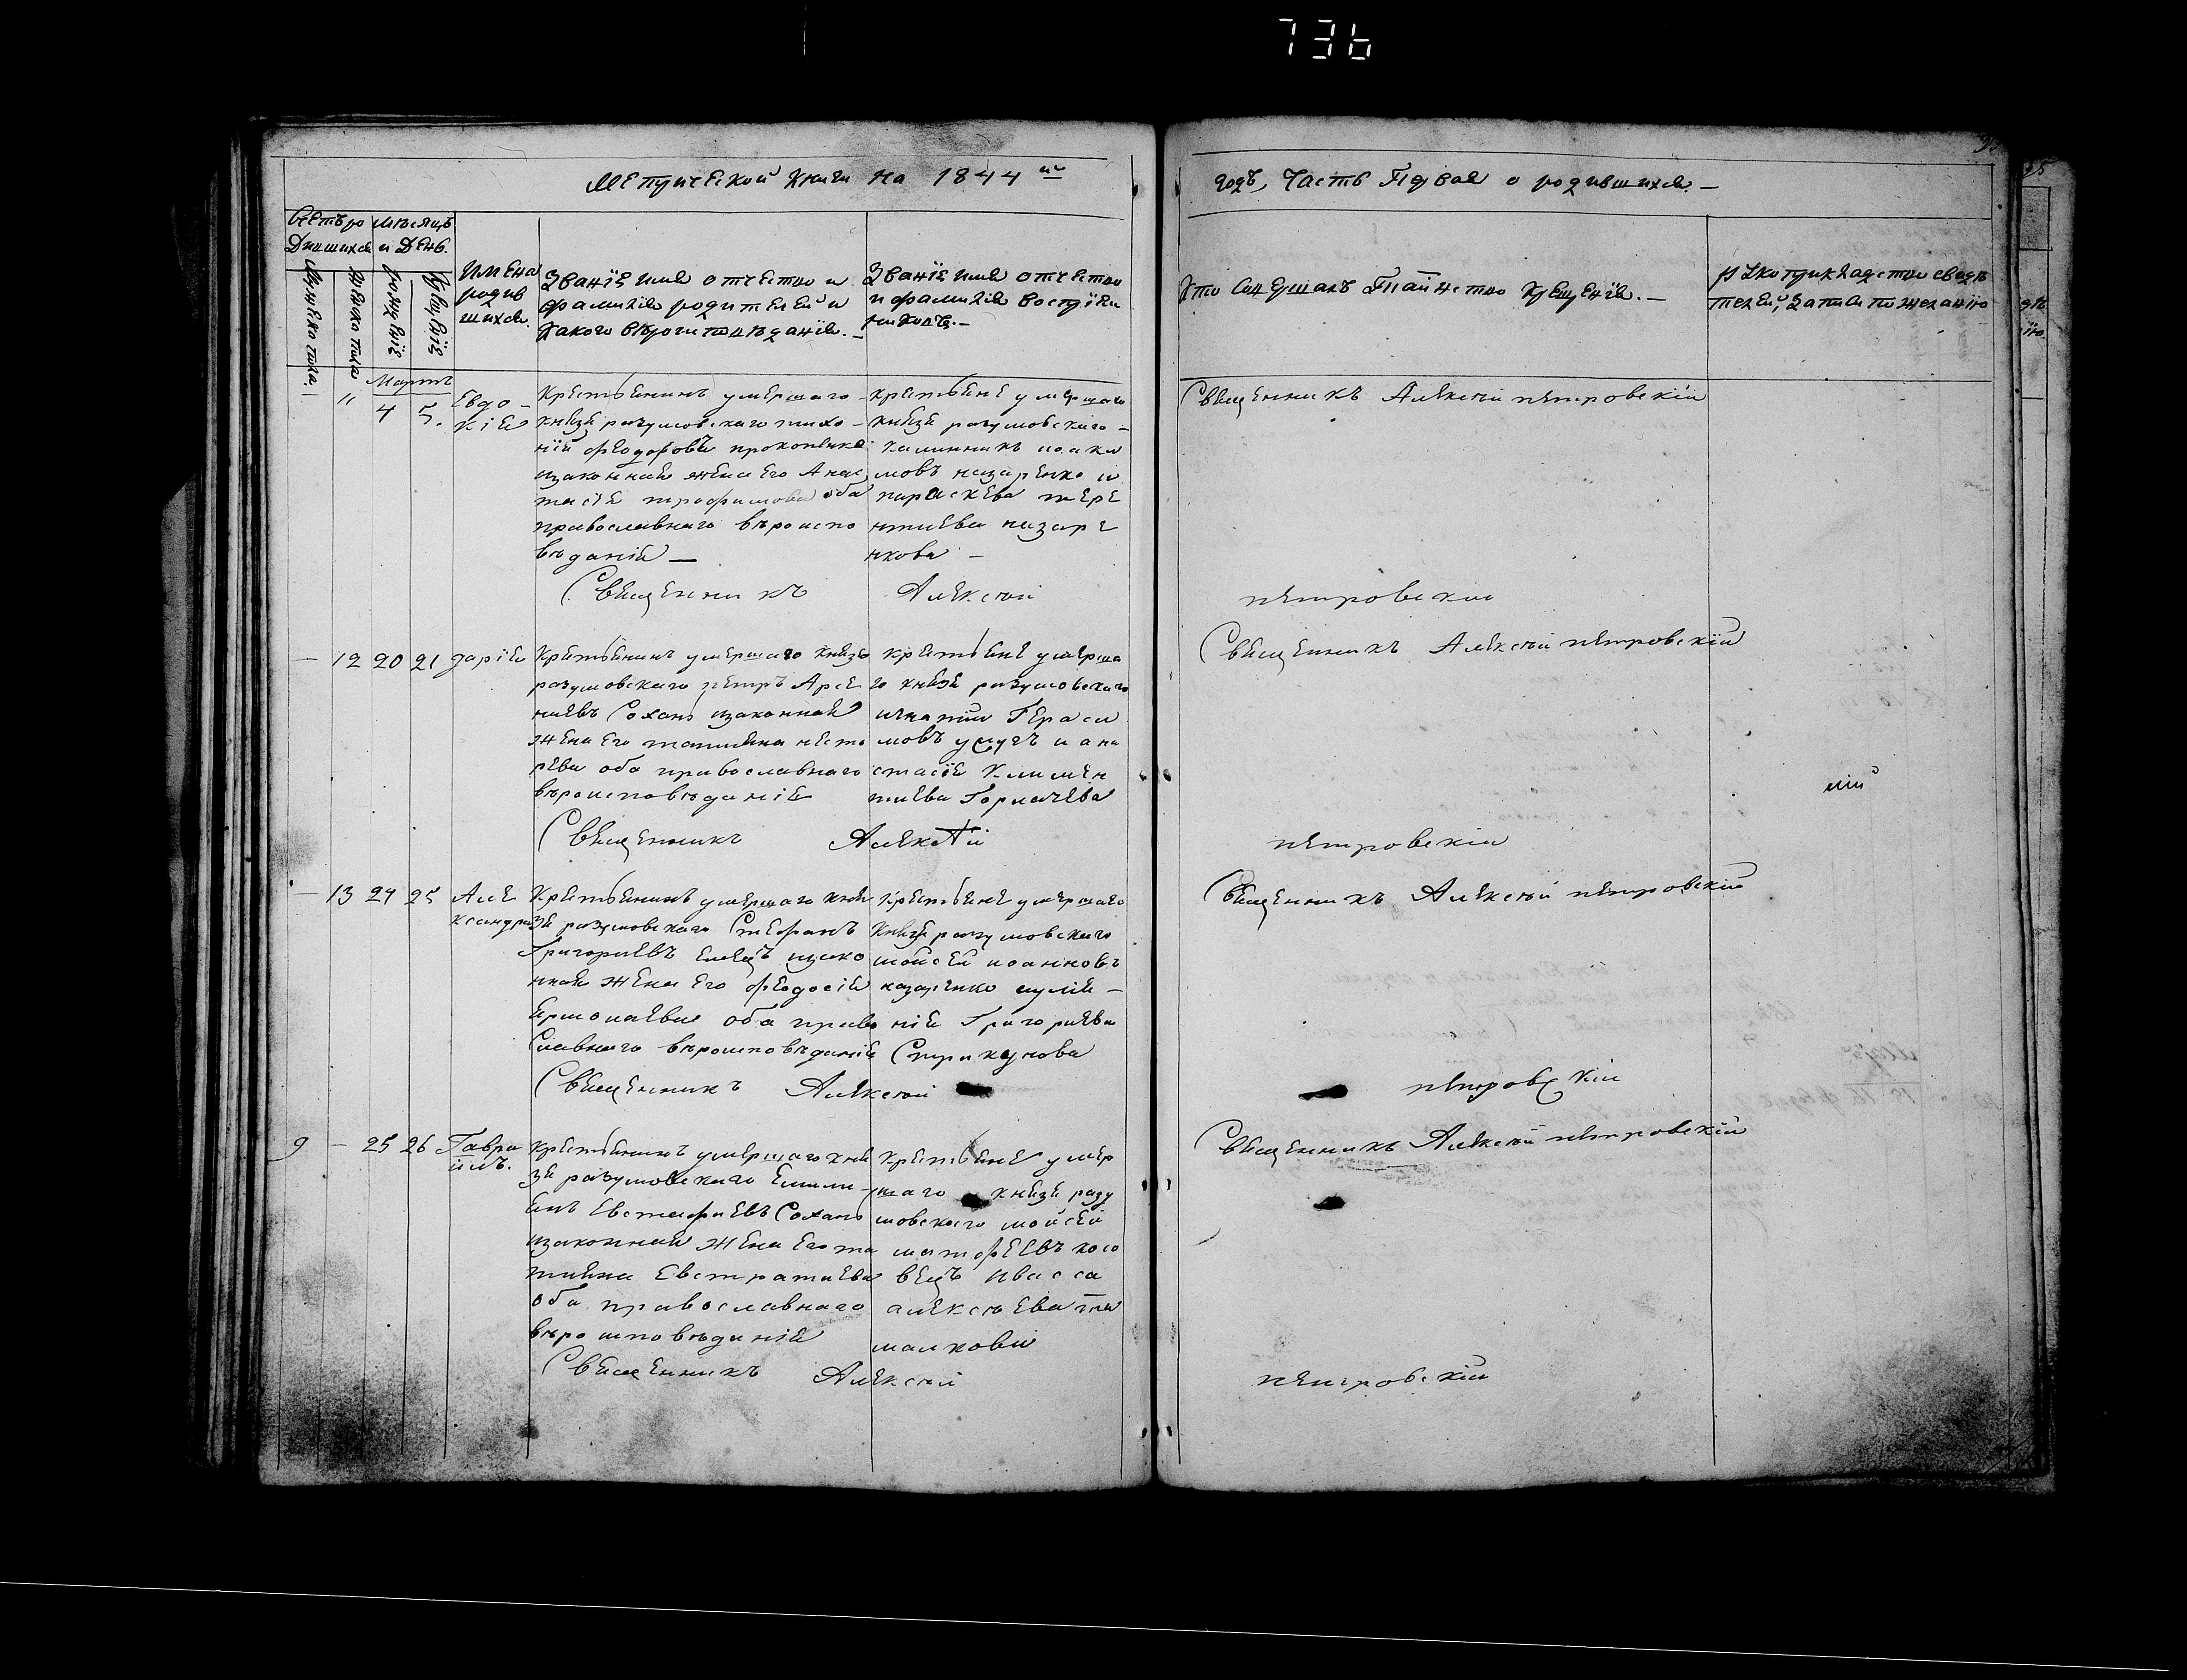 736
Метрической Книги на 1844 й
годъ, Часть Первая о родившихся. —
Счетъ ро
Дившихся
Мужеска пола.
Женска пола
мѣсяцъ
и День.
рожденіе
Крещеніе
Имена
родив
шихся.
Званіе имя отчество и
фамилія родителей и
Какого вѣроисповѣданія. —
Званіе имя отчество
и фамилія воспріем
никовъ. —
Кто совершалъ Таинство Крещенія. —
рукоприкладство свидѣ
телей, записи по желанію
Мартъ
11 4 5.
Евдо-
кія
Крестьянинъ умершаго
князя разумовскаго тихо-
ній феодоровъ прокопенко
изаконная жена его Анас
тасія трофимова оба
православнаго вѣроиспо
вѣданія —
крестьяне умершаго
князя разумовскаго —
калинникъ иоаки
мовъ назаренко и
параскева тере
нтиева назаре
нкова —
Священникъ Алексѣй петровскій
Священникъ Алексѣй петровскій
— 12 20 21 дарія
Крестьянинъ умершаго князя
разумовскаго петръ Арсе
ниевъ Сохань изаконная
жена его татияна несте
рева оба православнаго
вѣроисповѣданія
крестьяне умерша
го князя разумовскаго
игнатий Гераси
мовъ и ана
стасія Климен
тиева Горпачева
Священникъ Алексѣй петровскій
Священникъ Алексѣй петровскій
— 13 24 25 Але
ксандра
Крестьянинъ умершаго кня
зя разумовскаго Стефанъ
Григориевъ изако
нная жена его феодосія
Ермолаева оба право
славнаго вѣроисповѣданія
Крестьяне умершаго
князя разумовскаго
моисей иоанновъ
назаренко иулия-
нія Григориева
Стрикунова
Священникъ Алексѣй петровскій
Священникъ Алексѣй петровскій
9 — 25 26 Гаври
илъ.
Крестьянинъ умершаго кня
зя разумовскаго Емили-
янъ Евстафиевъ Сохань
изаконная жена его та
тияна Евстратиева
оба православнаго
вѣроисповѣданія
Крестьяне умер
шаго князя разу
мовскаго моисей
матфеевъ косо
вецъ ивасса
алексѣева
малкова
Священникъ Алексѣй петровскій
Священникъ Алексѣй петровскій